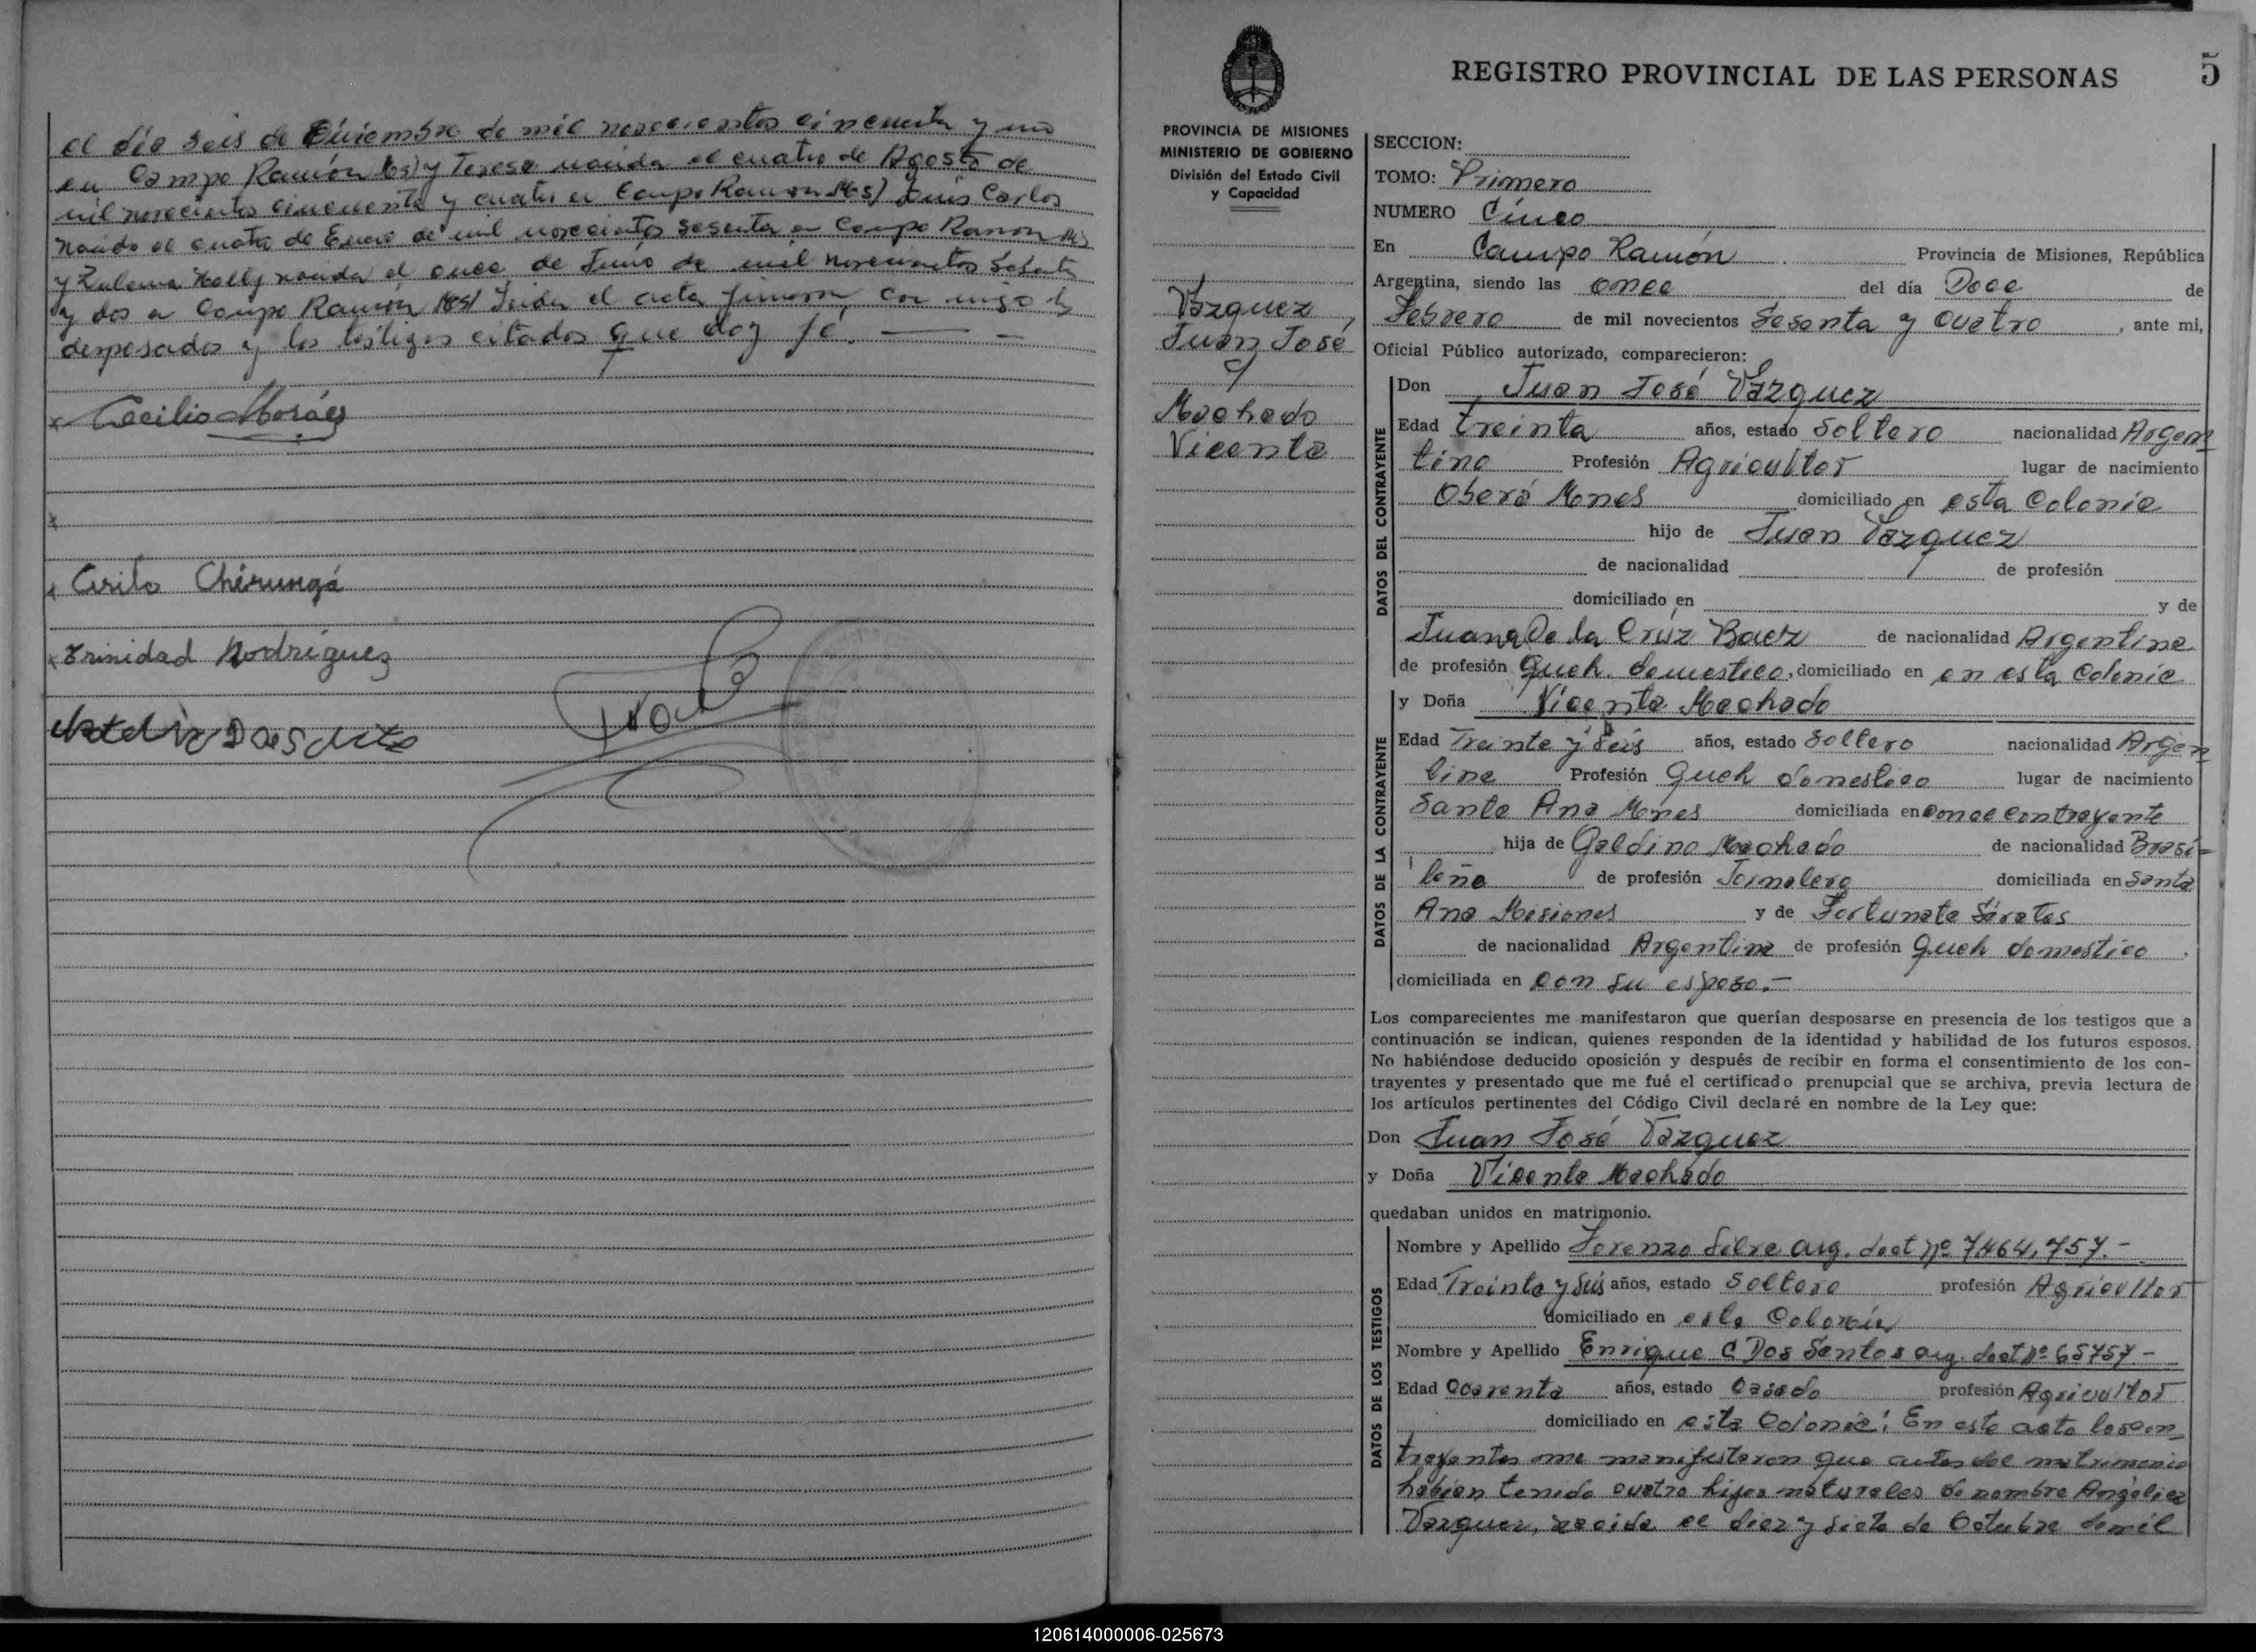 el día seis de Diciembre de mil novecientos cincuenta y uno
en Campo Ramón Ms) y Teresa nacida el cuatro de Agosto de
mil novecientos cincuenta y cuatro en Campo Ramon Ms) Luis Carlos
nacido el cuatro de Enero de mil novecientos sesenta en Campo Ramon Ms
y Zulema Nelly nacida el once de Junio de mil novecientos sesenta
y dos en Campo Ramón Ms) Leida el acta firmaron con migo los
desposados y los testigos citados que doy fé.
x Cecilio Moráes
x
x Cirilo Chirungá
x Trinidad Rodríguez
PROVINCIA DE MISIONES
MINISTERIO DE GOBIERNO
División del Estado Civil
y Capacidad
Vazquez,
Juan José
y
Machado
Vicenta
REGISTRO PROVINCIAL DE LAS PERSONAS 5
SECCION:
TOMO: Primero
NUMERO Cinco
En Campo Ramón Provincia de Misiones, República
Argentina, siendo las once del día Doce de
Febrero de mil novecientos Sesenta y Cuatro, ante mi,
Oficial Público autorizado, comparecieron:
DATOS DEL CONTRAYENTE
Don Juan José Vazquez
Edad treinta años, estado Soltero nacionalidad Argen
tino Profesión Agricultor lugar de nacimiento
Oberá Mones domiciliado en esta Colonia
hijo de Juan Vazquez
de nacionalidad de profesión
domiciliado en y de
Juana De la Crúz Baez de nacionalidad Argentina
de profesión Queh. domestico, domiciliado en en esta Colonia
DATOS DE LA CONTRAYENTE
y Doña Vicenta Machado
Edad Treinta y Seis años, estado Soltero nacionalidad Argen
tina Profesión Queh domestico lugar de nacimiento
Santa Ana Mones domiciliada en con el contrayente
hija de Galdino Machado de nacionalidad Brasi-
leña de profesión Jornalero domiciliada en Santa
Ana Misiones y de Fortunata Sárates
de nacionalidad Argentina de profesión Queh domestico.
domiciliada en con su esposo.-
Los comparecientes me manifestaron que querían desposarse en presencia de los testigos que a
continuación se indican, quienes responden de la identidad y habilidad de los futuros esposos.
No habiéndose deducido oposición y después de recibir en forma el consentimiento de los con-
trayentes y presentado que me fué el certificado prenupcial que se archiva, previa lectura de
los artículos pertinentes del Código Civil declaré en nombre de la Ley que:
Don Juan José Vazquez
y Doña Vicenta Machado
quedaban unidos en matrimonio.
DATOS DE LOS TESTIGOS
Nombre y Apellido Lorenzo Silva arg. doct nº 7.464,757.-
Edad Treinta y Seis años, estado Soltero profesión Agricultor
domiciliado en esta Colonia
Nombre y Apellido Enrique C Dos Santos arg. doct nº 65757.-
Edad Coarenta años, estado Casado profesión Agricultor
domiciliado en esta Colonia: En este acto los con
trayentes me manifestaron que antes del matrimonio
habian tenido cuatro hijos naturales de nombre Angélica
Vazquez, nacida el diez y siete de Octubre de mil
120614000006-025673